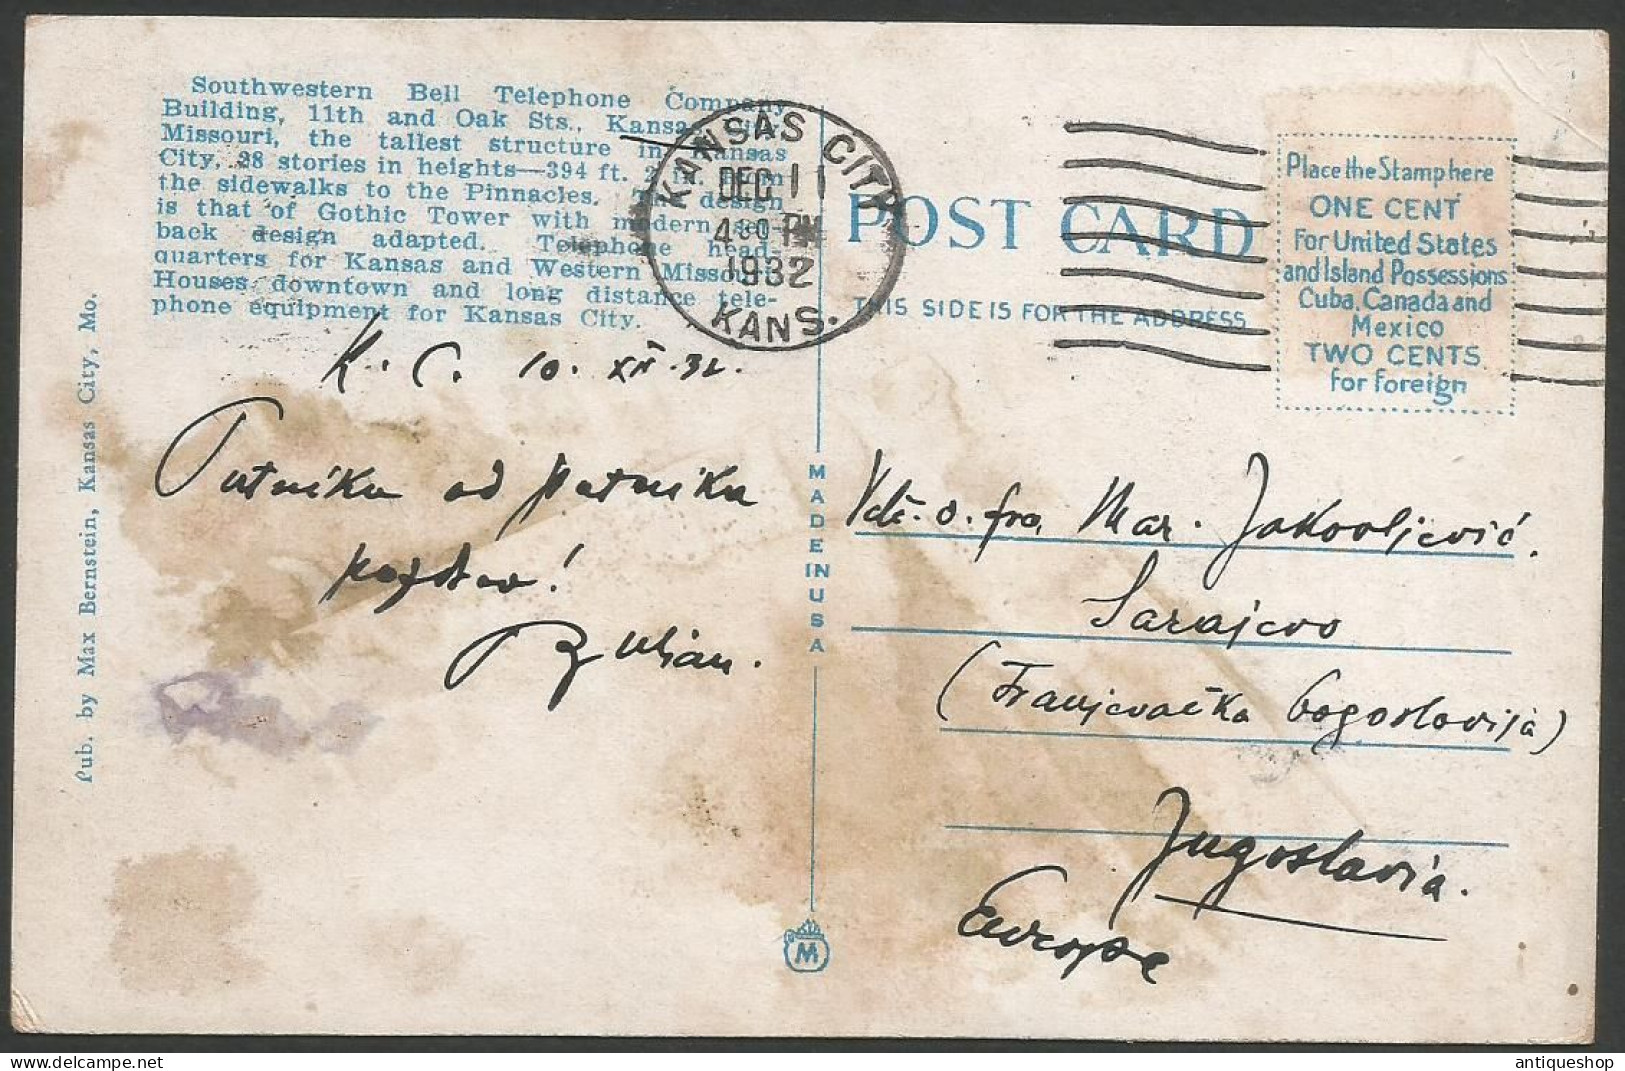 Southwestern Bell Telephone Company
Building, 11th and Oak Sts., Kansas City,
Missouri, the tallest structure in Kansas
City, 28 stories in heights—394 ft. 2 in. from
the sidewalks to the Pinnacles. The design
is that of Gothic Tower with modern set-
back design adapted. Telephone head-
quarters for Kansas and Western Missouri.
Houses downtown and long distance tele-
phone equipment for Kansas City.
KANSAS CITY
DEC 11
4 30 PM
1932
KANS.
POST CARD
THIS SIDE IS FOR THE ADDRESS
Place the Stamp here
ONE CENT
for United States
and Island Possessions
Cuba, Canada and
Mexico
TWO CENTS
for foreign
Pub. by Max Bernstein, Kansas City, Mo.
MADE IN USA
M
K. C. 10. XII. 32.
Putniku od putnika
pozdrav!
Vlč. o. fra Mar. Jakovljević.
Sarajevo
(Franjevačka bogoslovija)
Jugoslavia.
Europe
antiqueshop